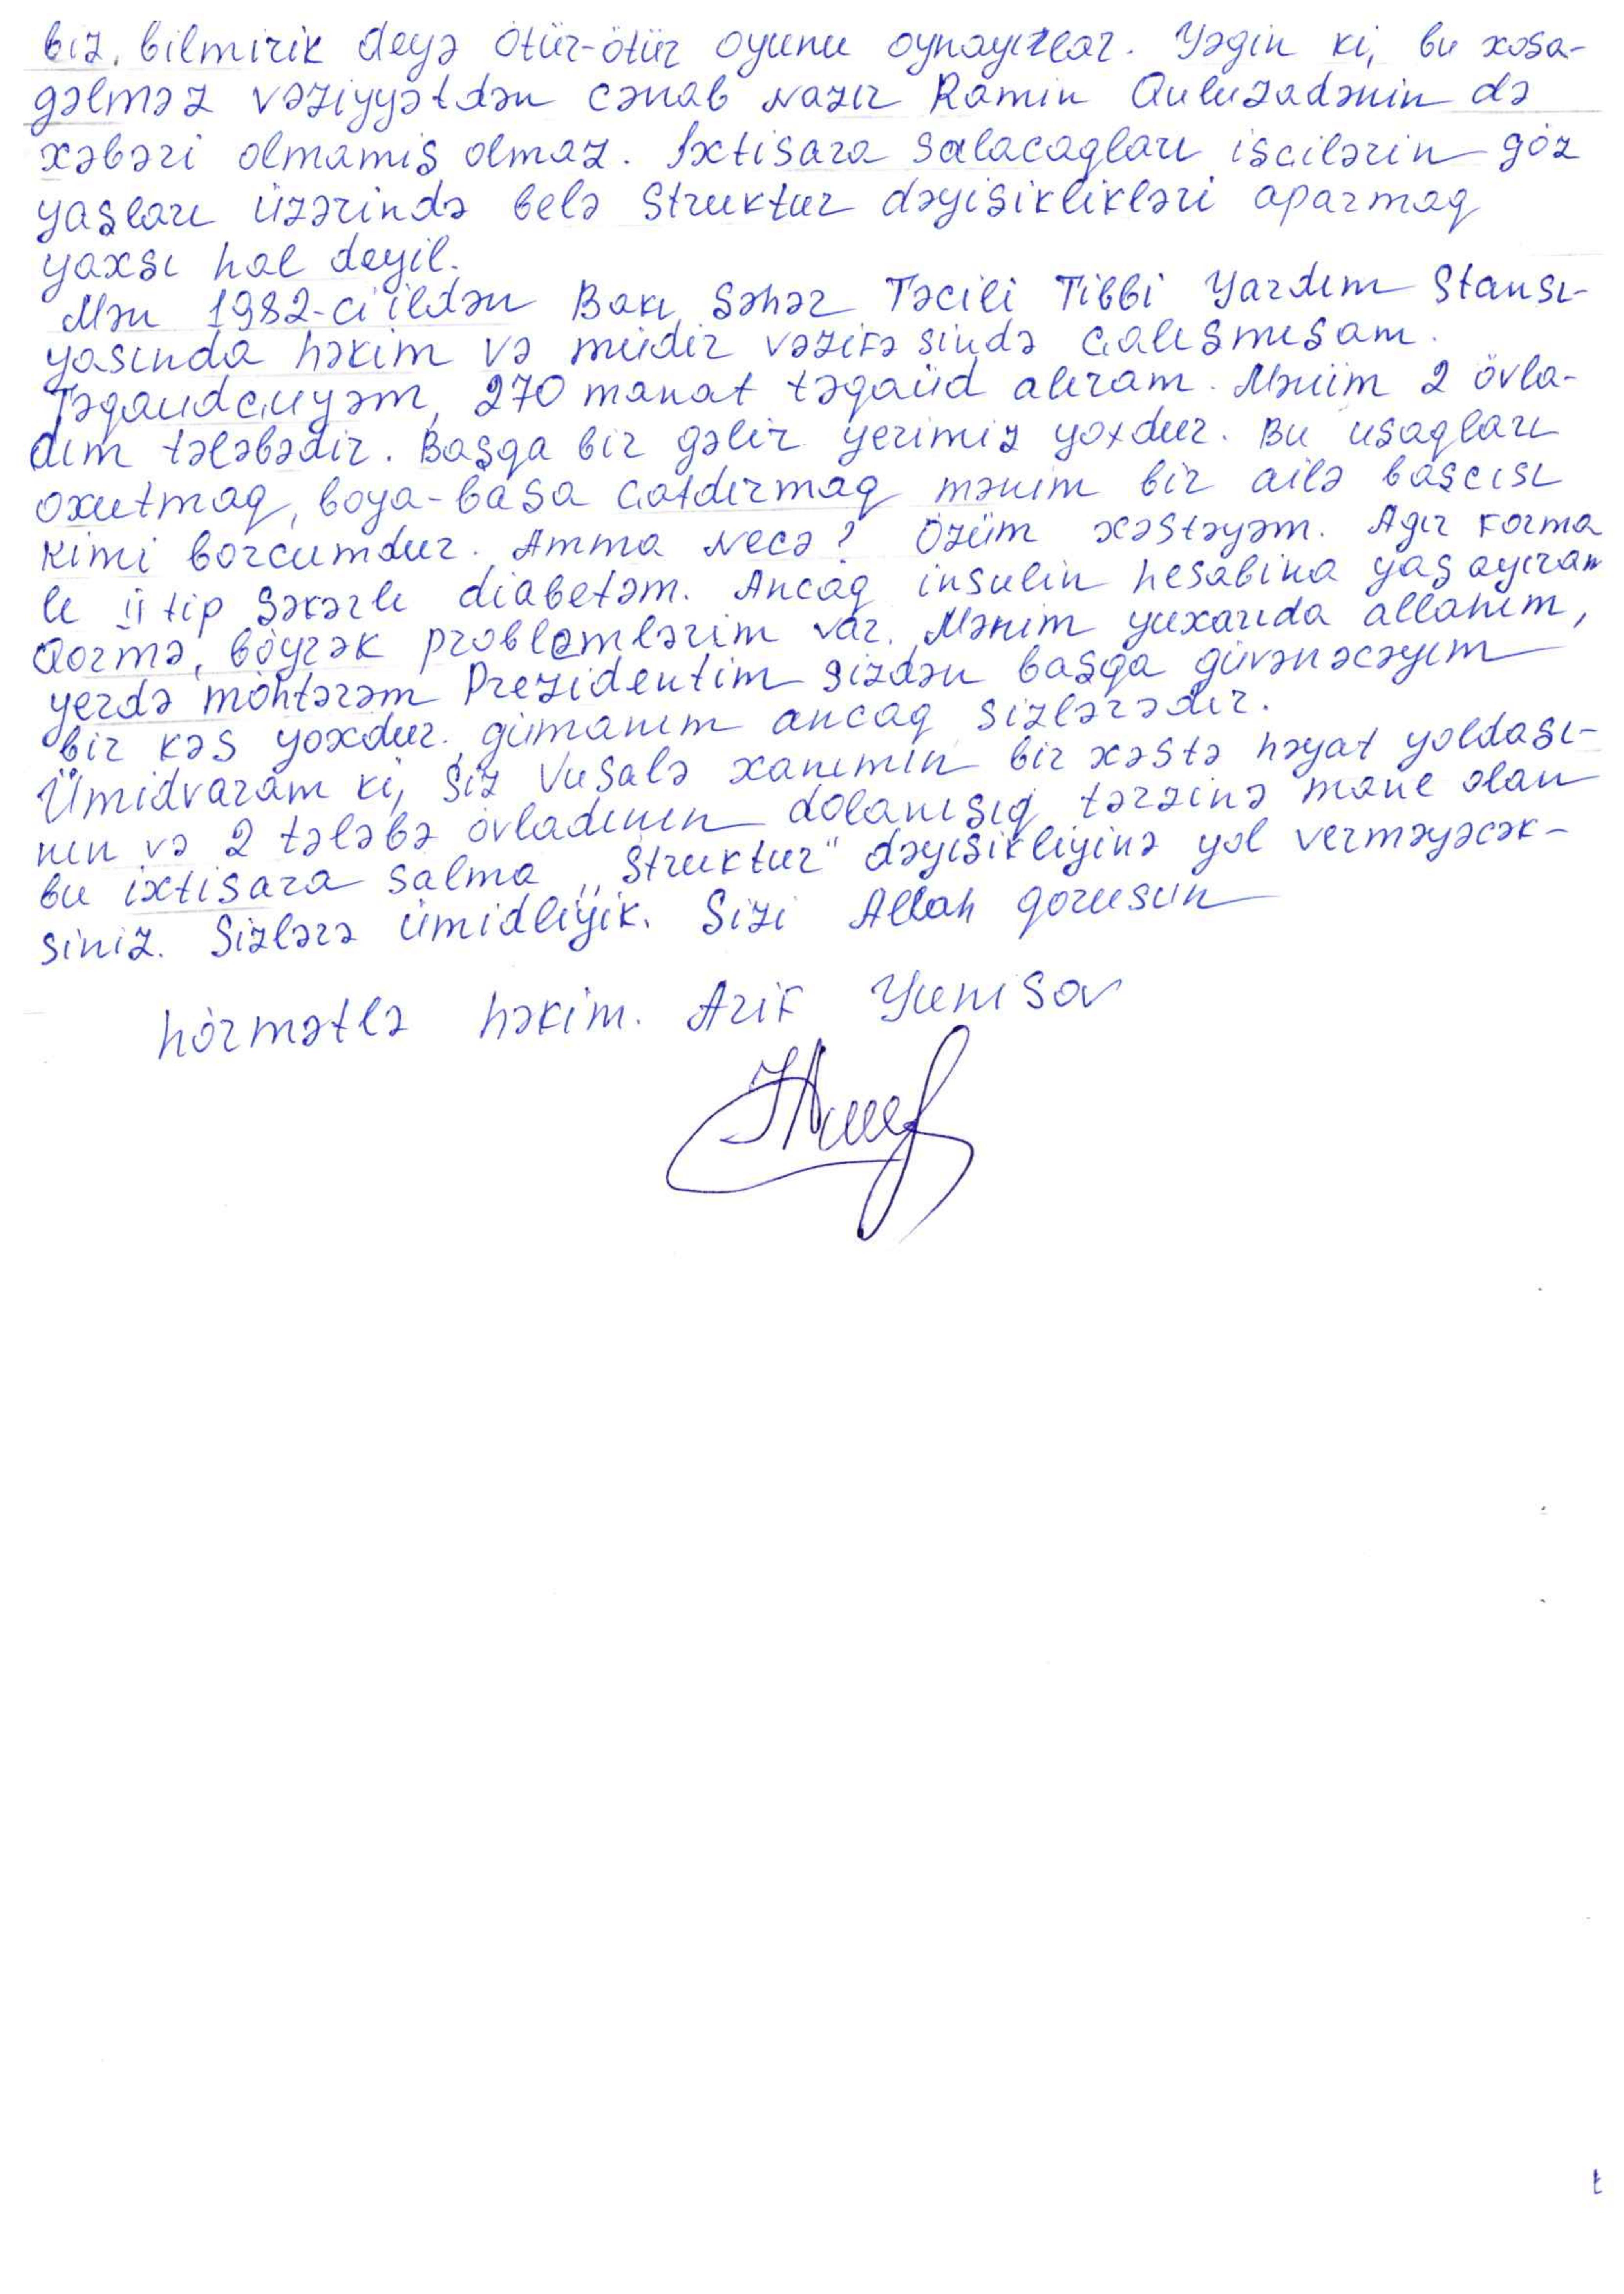 biz, bilmirik deyə ötür-ötür oyunu oynayırlar. Yəgin ki, bu xoşa-
gəlməz vəziyyətdən cənab Nazır Ramin Quluzadənin də
xəbəri olmamış olmaz. İxtisara salacaqları işcilərin göz
yaşları üzərində belə Struktur dəyişiklikləri aparmaq
yaxşı hal deyil.
Mən 1982-ci ildən Bakı Şəhər Təcili Tibbi Yardım Stansı-
yasında həkim və müdir vəzifəsində çalışmışam.
Təqaüdçüyəm, 270 manat təqaüd alıram. Mənim 2 övla-
dım tələbədir. Başqa bir gəlir yerimiz yoxdur. Bu uşaqları
oxutmaq, boya-başa çatdırmaq mənim bir ailə başcısı
kimi borcumdur. Amma Necə? Özüm xəstəyəm. Ağır forma
lı II tip şəkərli diabetəm. Ancaq insulin hesabına yaşayıram
Qörmə, böyrək problemlərim var. Mənim yuxarıda allahım,
yerdə möhtərəm Prezidentim Sizdən başqa güvənəcəyim
bir kəs yoxdur. gümanım ancaq sizlərədir.
Ümidvaram ki, Siz Vüsalə xanımın bir xəstə həyat yoldaşı-
nın və 2 tələbə övladının dolanışıq tərzinə mane olan
bu ixtisara salma „Struktur" dəyişikliyinə yol verməyəcək-
siniz. Sizlərə ümidliyik. Sizi Allah qorusun
hörmətlə həkim. Arif Yunisov